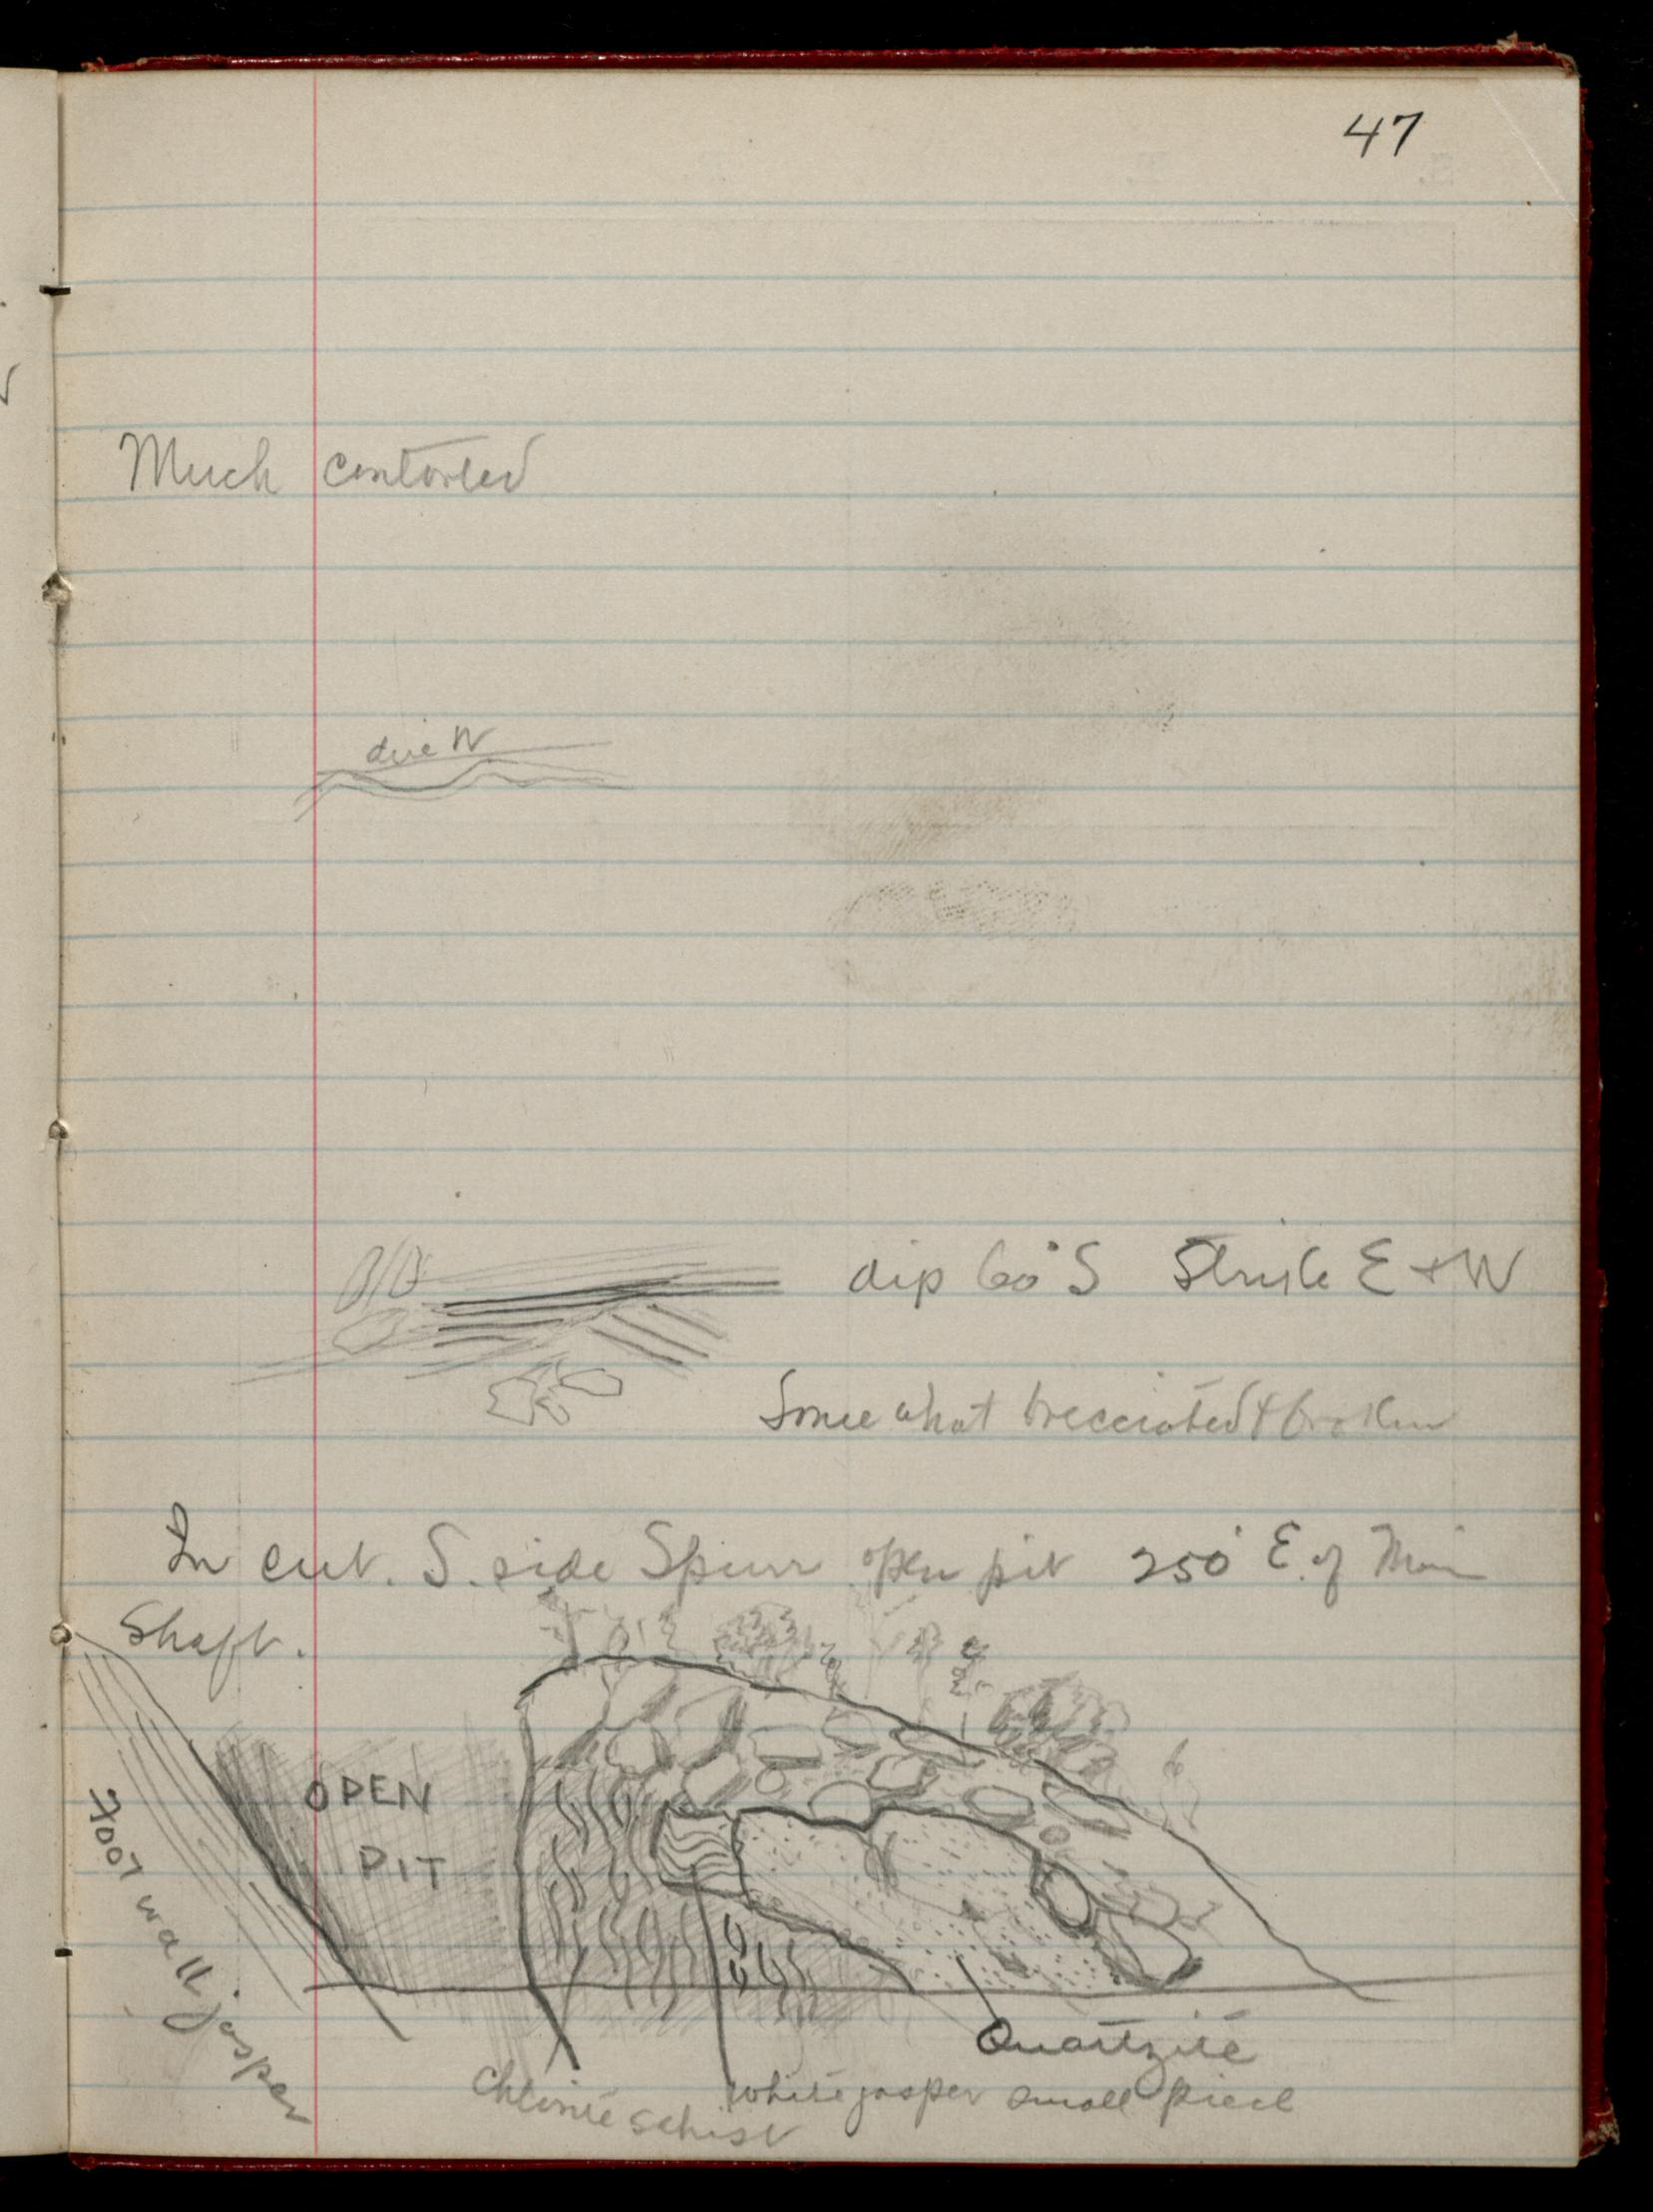 47
Much contorted
due N
dip 60° S Strike E + W
Some what brecciated & broken
In cut. S. side Spurr open pit 250' E. of Main
Shaft.
OPEN
PIT
Foot wall jasper
Quartzite
White jasper small piece
Chlorite schist